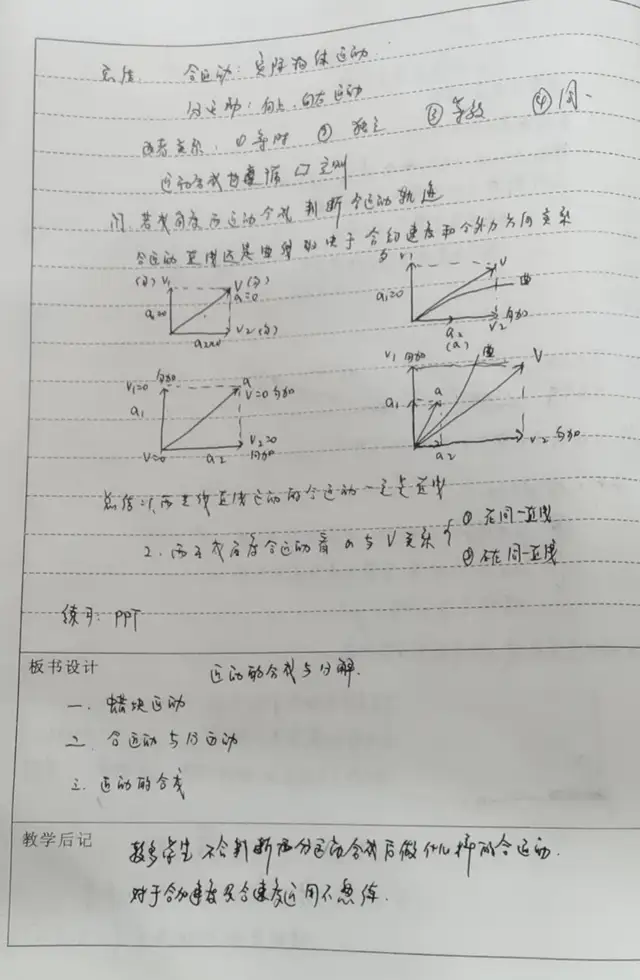 总结: 合运动: 实际物体运动
分运动: 向上, 向右运动
两者关系: ①等时 ② 独立 ③ 等效 ④ 同一
运动合成 遵循 □ 定则
问: 若成角度两运动合成 判断合运动轨迹
合运动 直线还是曲线取决于 合初速度和合外力方向关系
(匀) V₁ V (匀)
a=0
a₁=0
a₂=0 V₂ (匀)
匀 V₁ V
曲
a₁=0
a₂ V₂ 匀加
(a)
V₁=0 匀加 a
V=0 匀加
a₁
V=0 a₂ V₂=0
匀加
V₁ 匀加 曲 V
a₁ a
a₂ V₂ 匀加
总结: 1. 两 匀 直线运动的合运动一定是直线
2. 两 成后 合运动 看 a 与 V 关系 { ① 在同一直线
② 不在同一直线
练习: PPT
板书设计 运动的合成与分解.
一. 蜡块运动
二. 合运动与分运动
三. 运动的合成
教学后记 较多学生不会判断两分运动合成后做什么样的合运动.
对于合加速度及合速度运用不熟练.